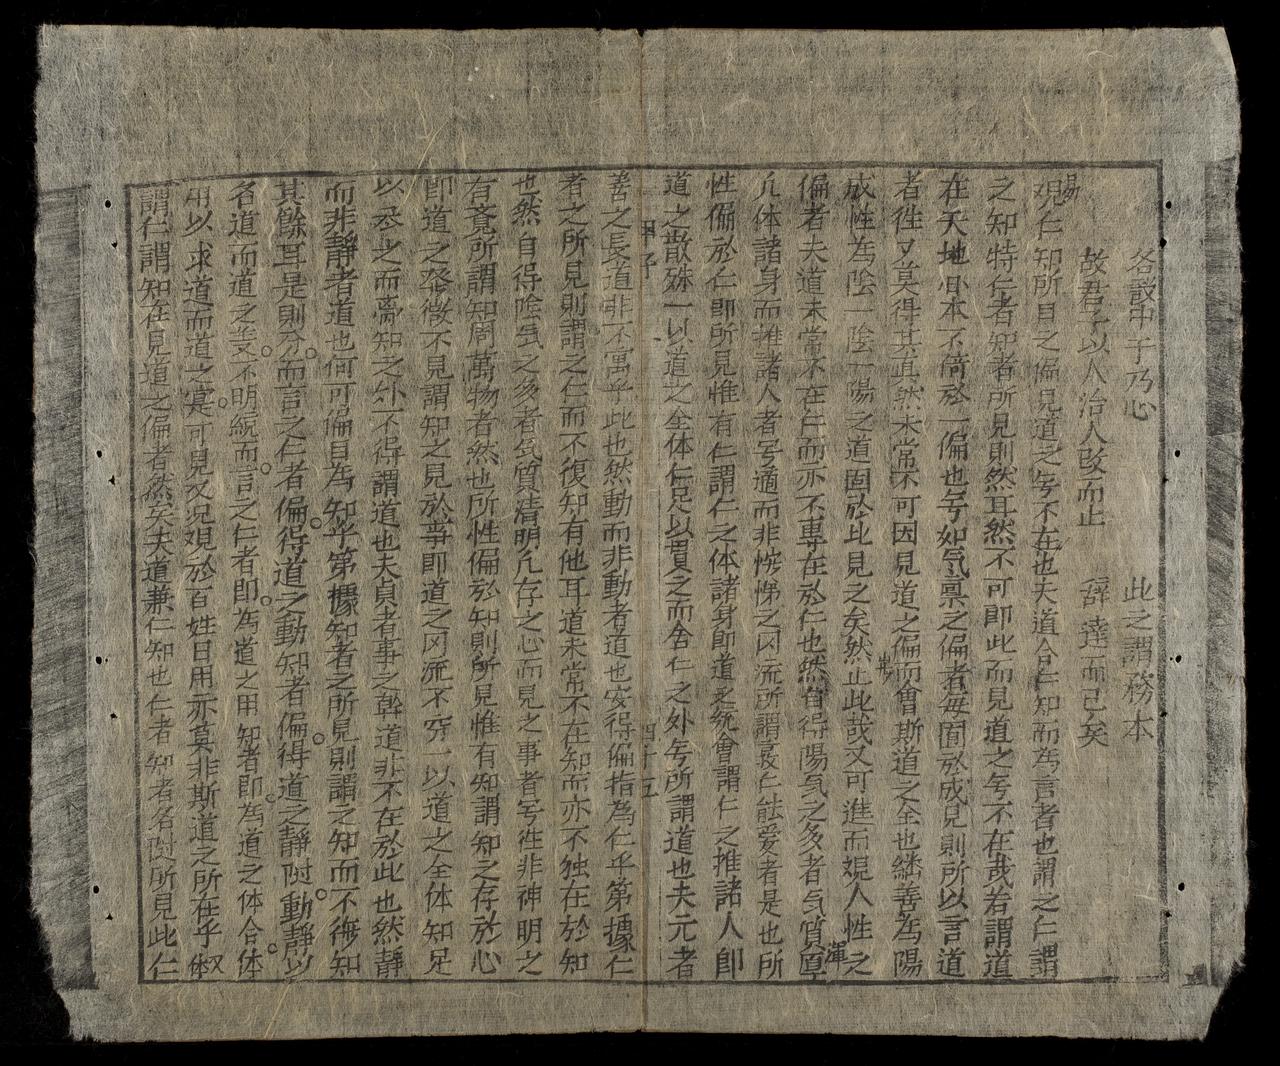 各設中于乃心 此之謂務本
故君子以人治人改而止 辞達而已矣
易
观仁知所目之偏見道之旡不在也夫道合仁知而為言者也謂之仁謂
之知特仁者知者所見則然耳然不可即此而見道之旡不在哉若謂道
在天地間本不倚於一偏也旡如気禀之偏者每囿於成見則所以言道
者徃又莫得其真然未常不可因見道之偏而會斯道之全也継善為陽
成性為陰一陰一陽之道固於此見之矣然止此哉又可進而观人性之
偏者夫道未常不在仁而亦不專在於仁也然自得陽気之多者気質厚
渾
凡体諸身而推諸人者旡適而非愷悌之周流所謂長仁能爱者是也所
性偏於仁即所見惟有仁謂仁之体諸身即道之統會謂仁之推諸人即
道之散殊一以道之全体仁足以貫之而舍仁之外旡所謂道也夫元者
甲子 四十五
善之長道非不寓乎此也然動而非動者道也安得偏指為仁乎第據仁
者之所見則謂之仁而不復知有他耳道未常不在知而亦不独在於知
也然自得陰気之多者気質清明凡存之心而見之事者旡徃非神明之
有斎所謂知周萬物者然也所性偏於知則所見惟有知謂知之存於心
即道之發微不見謂知之見於事即道之周流不穷一以道之全体知足
以尽之而离知之外不得謂道也夫貞者事之幹道非不在於此也然静
而非静者道也何可偏目為知乎第據知者之所見則謂之知而不復知
其餘耳是則分而言之仁者偏得道之動知者偏得道之静附動静以
名道而道之義不明統而言之仁者即為道之用知者即為道之体合体
用以求道而道之寔可見又况观於百姓日用亦莫非斯道之所在乎叹
謂仁謂知在見道之偏者然矣夫道兼仁知也仁者知者名附所見此仁